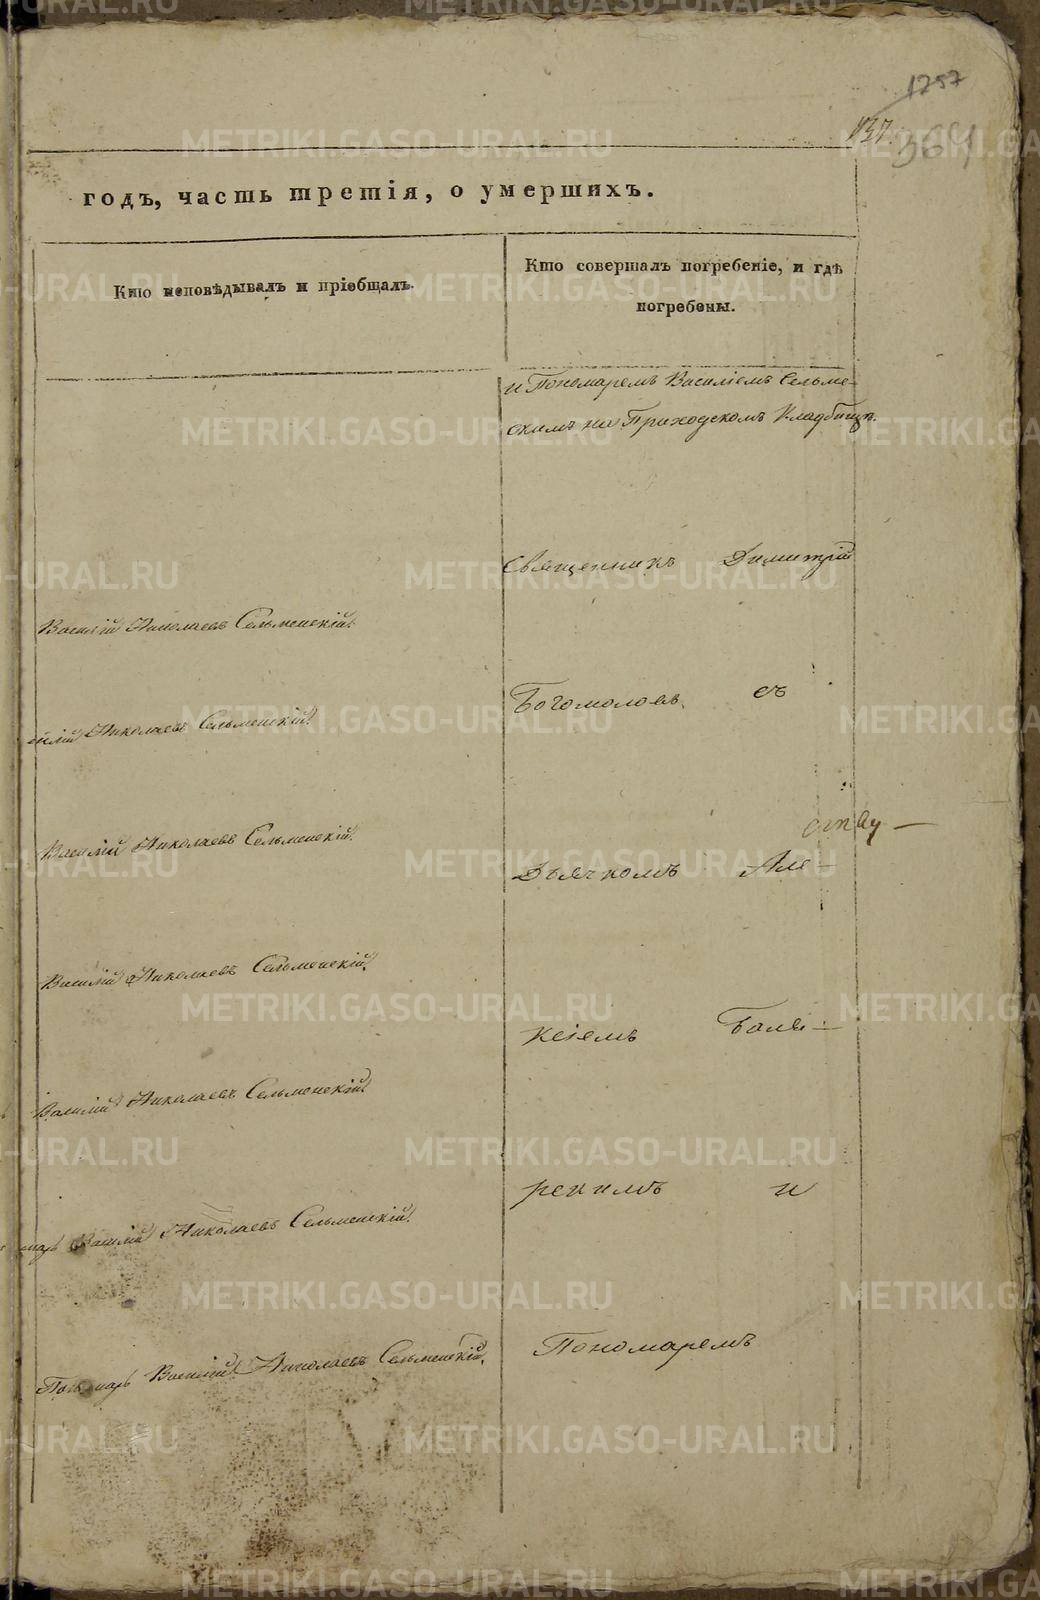 1757
137.
364
годъ, часть третія, о умершихъ.
Кто исповѣдывалъ и пріобщалъ.
Кто совершалъ погребеніе, и гдѣ
погребены.
и Пономаремъ Василіемъ Сельме-
скимъ на Приходскомъ Кладбищѣ.
Священникъ Димитрій
Василій Николаевъ Сельменскій.
Богомоловъ. съ
силій Николаевъ Сельменскій.
Василій Николаевъ Сельменскій.
Дьячкомъ Але-
Василій Николаевъ Сельменскій.
ксіемъ
Василій Николаевъ Сельменскій.
и
марь Василій Николаевъ Сельменскій.
Пономаремъ
Пономарь Василій Николаевъ Сельменскій.
METRIKI.GASO-URAL.RU